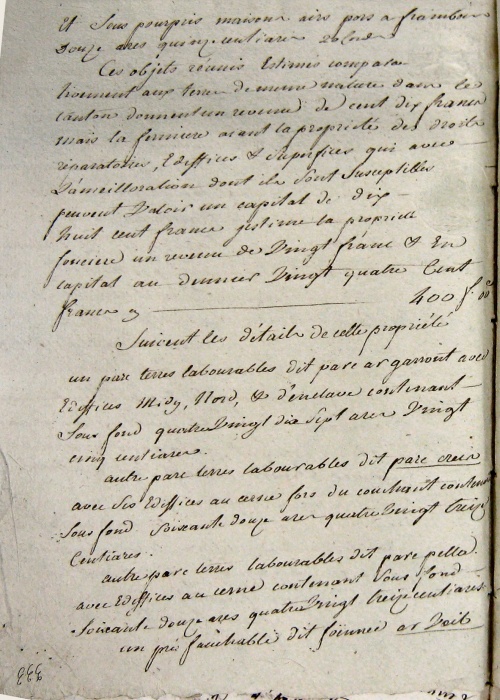 Et sous pourpris maisons airs pors a framboir
Douze ares quinze centiares
Ces objets réunis Estimes compara
tivement aux terres de meme nature dans le
canton donnent un revenu de cent dix francs
mais la fermiere ayant la propriété des droits
réparatoires, Ediffices & superfices qui avec
L'améilloration dont ils sont susceptibles
peuvent valoir un capital de dix
huit cent francs j'estime la propriété
fonciere un revenu de vingt franc & En
capital au dennier vingt quatre Cent
francs 400 f. 00
Suivent les détails de cette propriété
un parc terres labourables dit parc ar garront avec
Ediffices Midy, Nord, & d'enclave contenant
Sous fond quatre vingt dix sept ares vingt
cinq centiares.
autre parc terres labourables dit parc creis
avec ses Ediffices au cerne fors du couchant contenant
Sous fond soixante douze ares quatre vingt treize
Centiares.
autre parc terres labourables dit parc pella
avec Ediffices au cerne contenant sous fond
soixante douze ares quatre vingt treize centiares
un pré fauchable dit foënnec ar
333